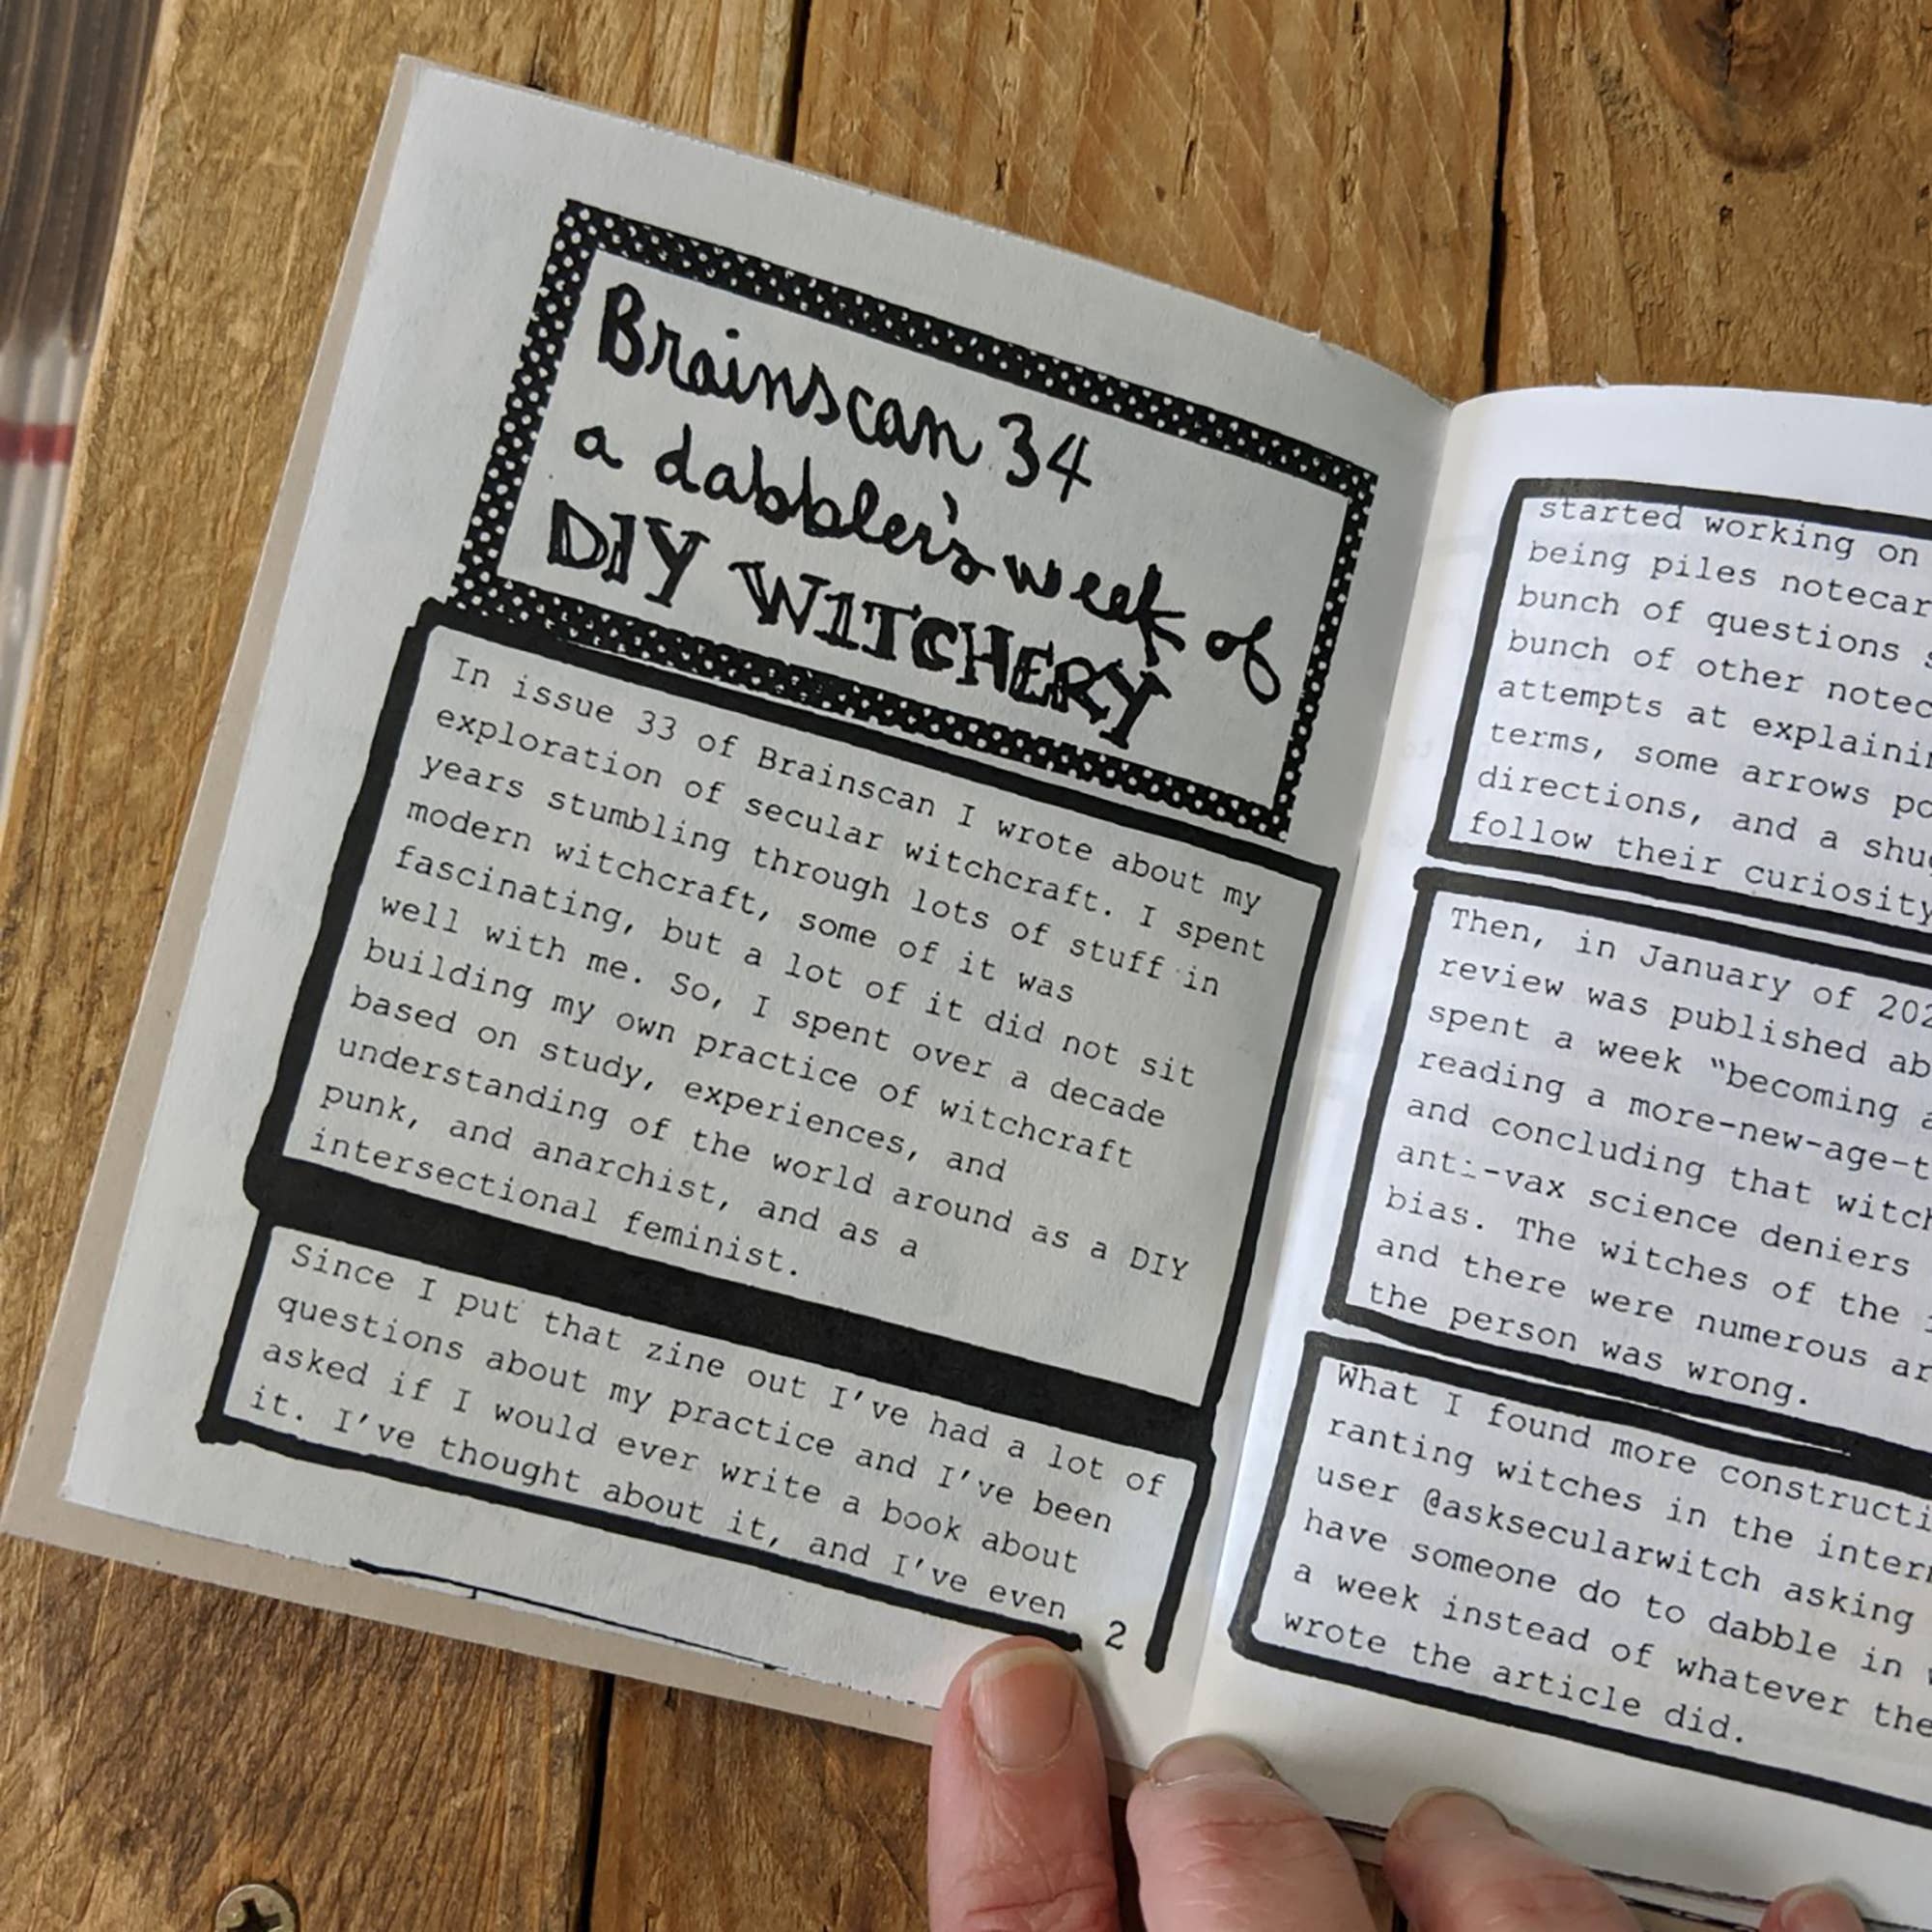 Brainscan 34
a dabbler's week of
DIY WITCHERY
In issue 33 of Brainscan I wrote about my
exploration of secular witchcraft. I spent
years stumbling through lots of stuff in
modern witchcraft, some of it was
fascinating, but a lot of it did not sit
well with me. So, I spent over a decade
building my own practice of witchcraft
based on study, experiences, and
understanding of the world around as a DIY
punk, and anarchist, and as a
intersectional feminist.
Since I put that zine out I've had a lot of
questions about my practice and I've been
asked if I would ever write a book about
it. I've thought about it, and I've even
2
started working on
being piles notecar
bunch of questions
bunch of other notec
attempts at explaini
terms, some arrows po
directions, and a shu
follow their curiosity
Then, in January of 202
review was published ab
spent a week "becoming a
reading a more-new-age-t
and concluding that witch
anti-vax science deniers
bias. The witches of the
and there were numerous ar
the person was wrong.
What I found more constructi
ranting witches in the intern
user @asksecularwitch asking
have someone do to dabble in
a week instead of whatever the
wrote the article did.